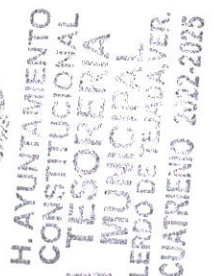 H. AYUNTAMIENTO
CONSTITUCIONAL
TESORERA
MUNICIPAL
LERDO DE TEJADA, VER.
CUATRIENIO 2022-2025